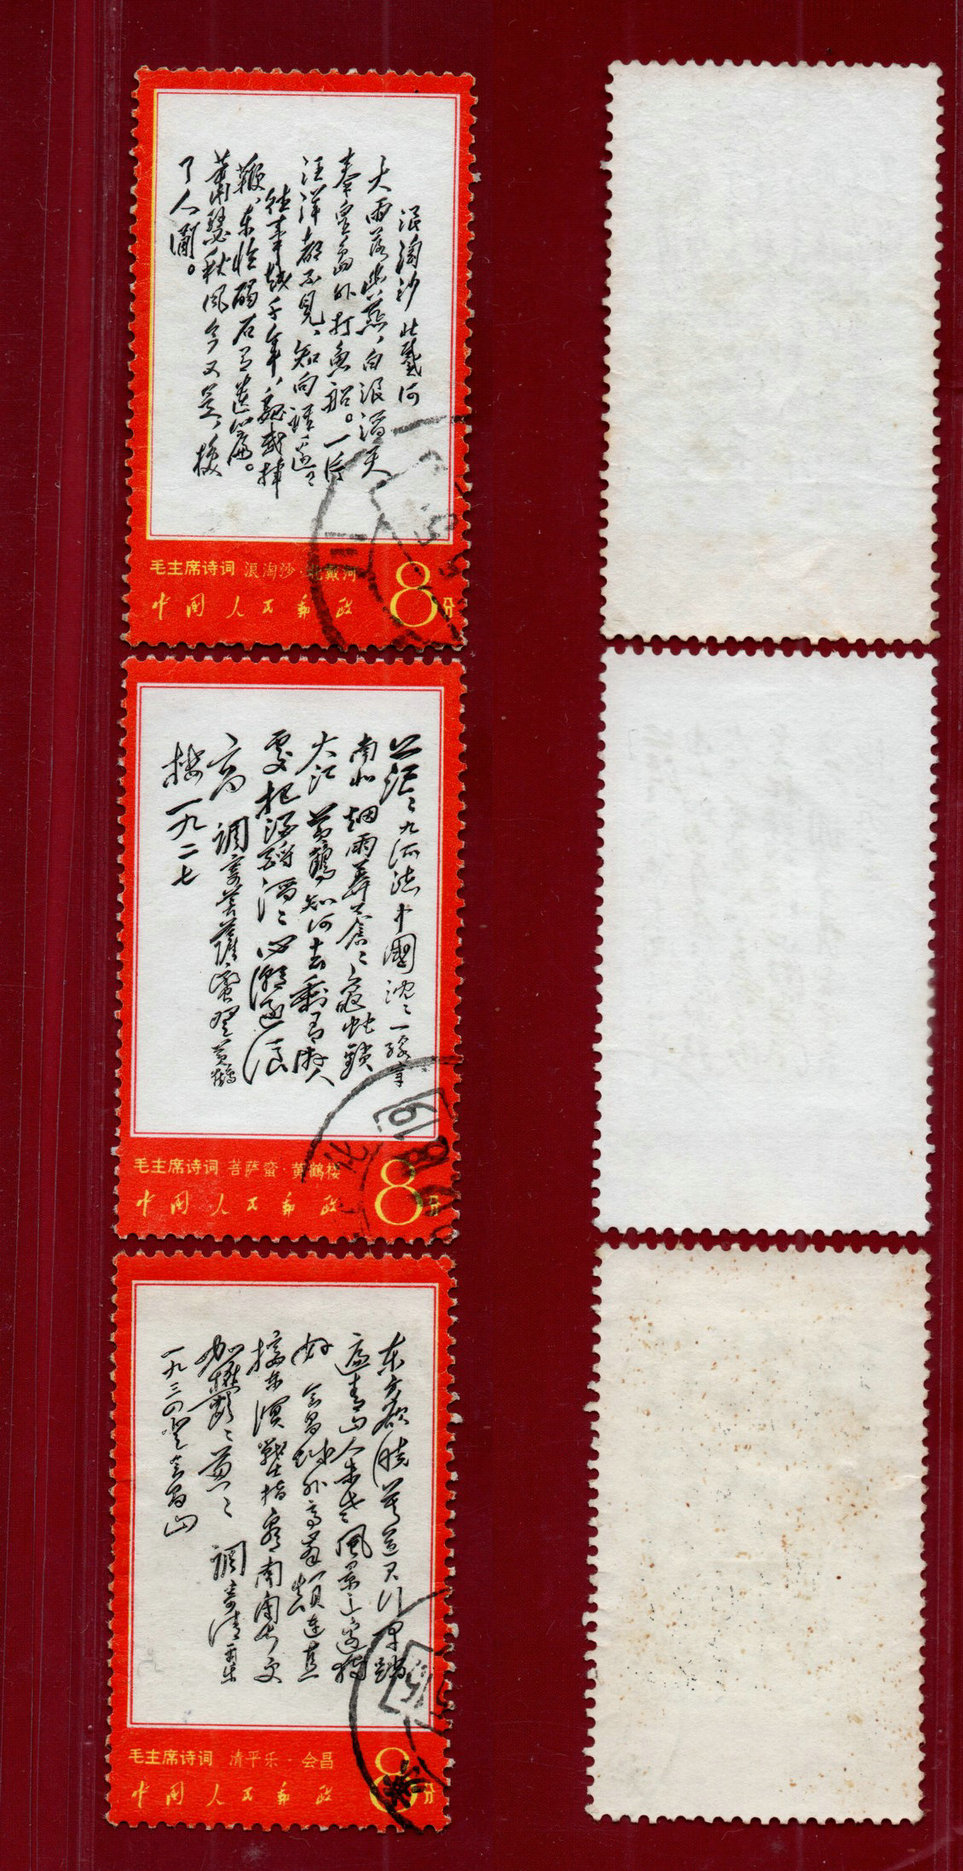 浪淘沙 北戴河
大雨落幽燕、白浪滔天、
秦皇岛外打魚船。一片
汪洋都不見、知向誰边?
往事越千年、魏武挥
鞭、东临碣石有遺篇。
萧瑟秋风今又是、换
了人间。
毛主席诗词 浪淘沙·北戴河
中国人民邮政 8分
茫々九派流中國沈々一線穿
南北 烟雨莽蒼々龜蛇鎖
大江 黄鶴知何去剩有遊人
處 把酒酹滔々心潮逐浪
高 調寄菩薩蠻 登黄鶴
楼 一九二七
毛主席诗词 菩萨蛮·黄鹤楼
中国人民邮政 8分
东方欲曉莫道君行早踏
遍青山人未老風景这邊獨
好 会昌城外高峯顛連直
接东溟 戰士指看南粤更
加鬱々葱々 調寄清平乐
一九三四登会昌山
毛主席诗词 清平乐·会昌
中国人民邮政 8分